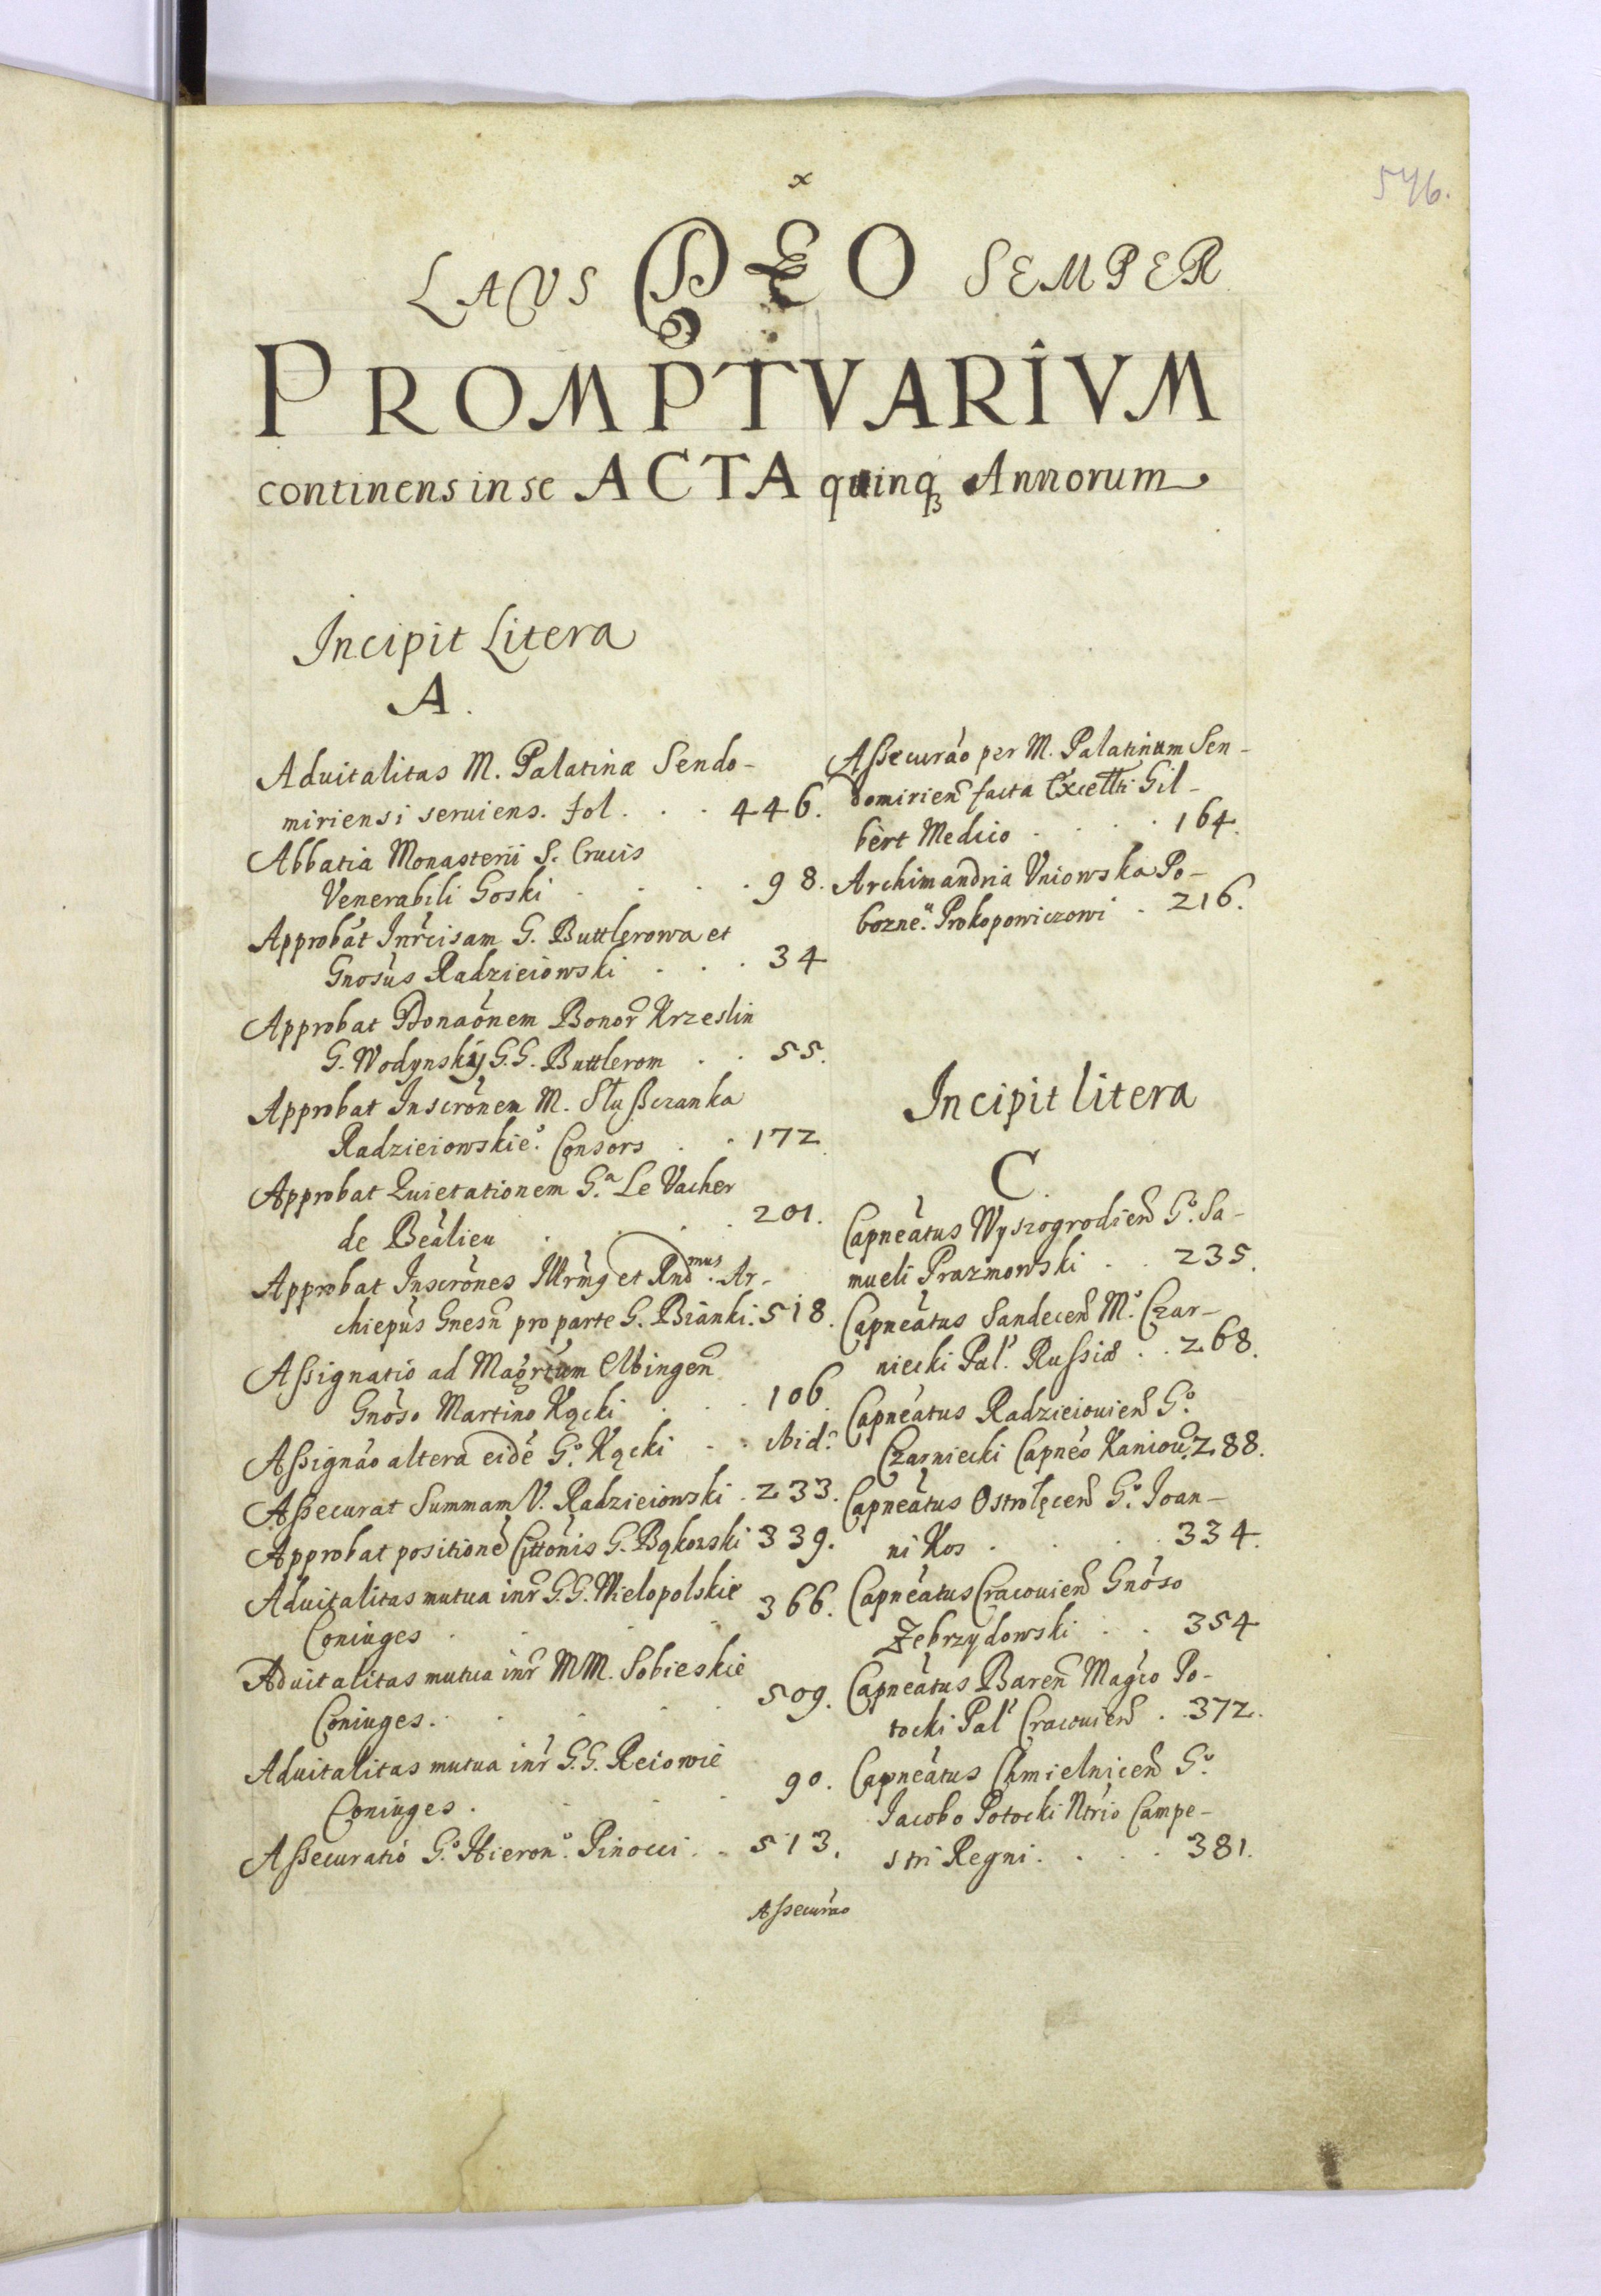 546.
x
LAVS DEO SEMPER
PROMPTVARIVM
continens in se ACTA quinq; Annorum
Incipit Litera
A.
Aduitalitas M. Palatinæ Sendo-
miriensi seruiens. fol. . . 446.
Abbatia Monasterii S. Crucis
Venerabili Goski . . . . 98.
Approbat Inrcisam G. Buttlerowa et
Gnosus Radzieiowski . . . 34
Approbat Donaonem Bonor Krzeslin
G. Wodynskij G.G. Buttlerom . . 55.
Approbat Inscronem M. Słuszczanka
Radzieiowskie Consors . . 172.
Approbat Quietationem G.a Le Vacher
de Bealieu . . . . 201.
Approbat Inscrones Illrmg et Rnd mus. Ar-
chiepus Gnesn pro parte G. Bianki. 518.
Assignatio ad Magrtum Elbingen
Gnoso Martino Kącki . . . 106.
Assignao altera eidē G.o Kącki . . ibid.
Assecurat Summam V. Radzieiowski . 233.
Approbat positionē Cittonis G. Bąkowski 339.
Aduitalitas mutua inr G.G. Wielopolskie
Coniuges . . . . 366.
Aduitalitas mutua inr MM. Sobieskie
Coniuges. . . . . 509.
Aduitalitas mutua inr G.G. Reiowie
Coniuges. . . . . 90.
Assecuratio G.o Hieron.o Pinocci . . 513.
Assecurao
Assecurao per M. Palatinum Sen-
domirien facta Excellti Gil-
bert Medico . . . . 164.
Archimandria Vniowska Po-
bozne. Prokopowiczowi . 216.
Incipit litera
C.
Capneatus Wyszogrodien G.o Sa-
mueli Prazmowski . . 235.
Capneatus Sandecen M.o Czar-
niecki Pal. Russiæ . . 268.
Capneatus Radzieiouien G.o
Czarniecki Capneo Kaniou. 288.
Capneatus Ostrołęcen G.o Ioan-
ni Kos . . . . 334.
Capneatus Cracouien Gnoso
Zebrzydowski . . 354
Capneatus Baren Magco Po-
tocki Pal Cracouien . . 372.
Capneatus Chmielnicen G.o
Jacobo Potocki Ntrio Campe-
stri Regni. . . . 381.